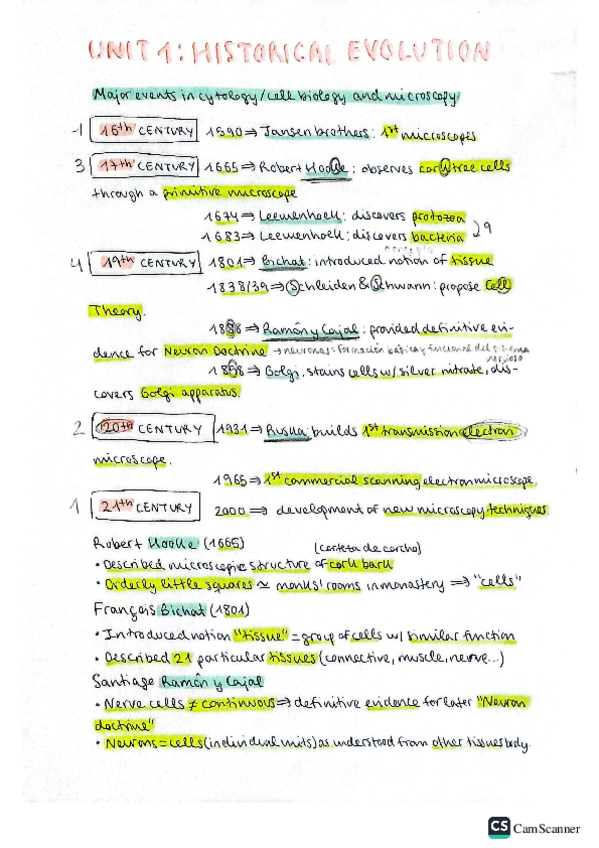 UNIT 1: HISTORICAL EVOLUTION
Major events in cytology/cell biology and microscopy
1 16th CENTURY 1590 ⇒ Jansen brothers: 1st microscopes
3 17th CENTURY 1665 ⇒ Robert Hooke: observes cork tree cells
through a primitive microscope
1674 ⇒ Leewenhoek: discovers protozoa
1683 ⇒ Leewenhoek: discovers bacteria
4 19th CENTURY 1801 ⇒ Bichat: introduced notion of tissue
1838/39 ⇒ Schleiden & Schwann: propose Cell
Theory.
1888 ⇒ Ramón y Cajal: provided definitive evi-
dence for Neuron Doctrine → neuronas: formación básica y funcional del sistema
nervioso
1898 ⇒ Golgi, stains cells w/ silver nitrate, dis-
covers Golgi apparatus.
2 20th CENTURY 1931 ⇒ Ruska: builds 1st transmission electron
microscope.
1965 ⇒ 1st commercial scanning electron microscope.
1 21th CENTURY 2000 ⇒ development of new microscopy techniques
Robert Hooke (1665) (corteza de corcho)
• Described microscopic structure of cork bark
• Orderly little squares ≃ monks' rooms in monastery ⇒ "cells"
François Bichat (1801)
• Introduced notion "tissue" = group of cells w/ similar function
• Described 21 particular tissues (connective, muscle, nerve...)
Santiago Ramón y Cajal
• Nerve cells ≠ continuous ⇒ definitive evidence for later "Neuron
doctrine"
• Neurons = cells (individual units) as understood from other tissues body.
CS CamScanner